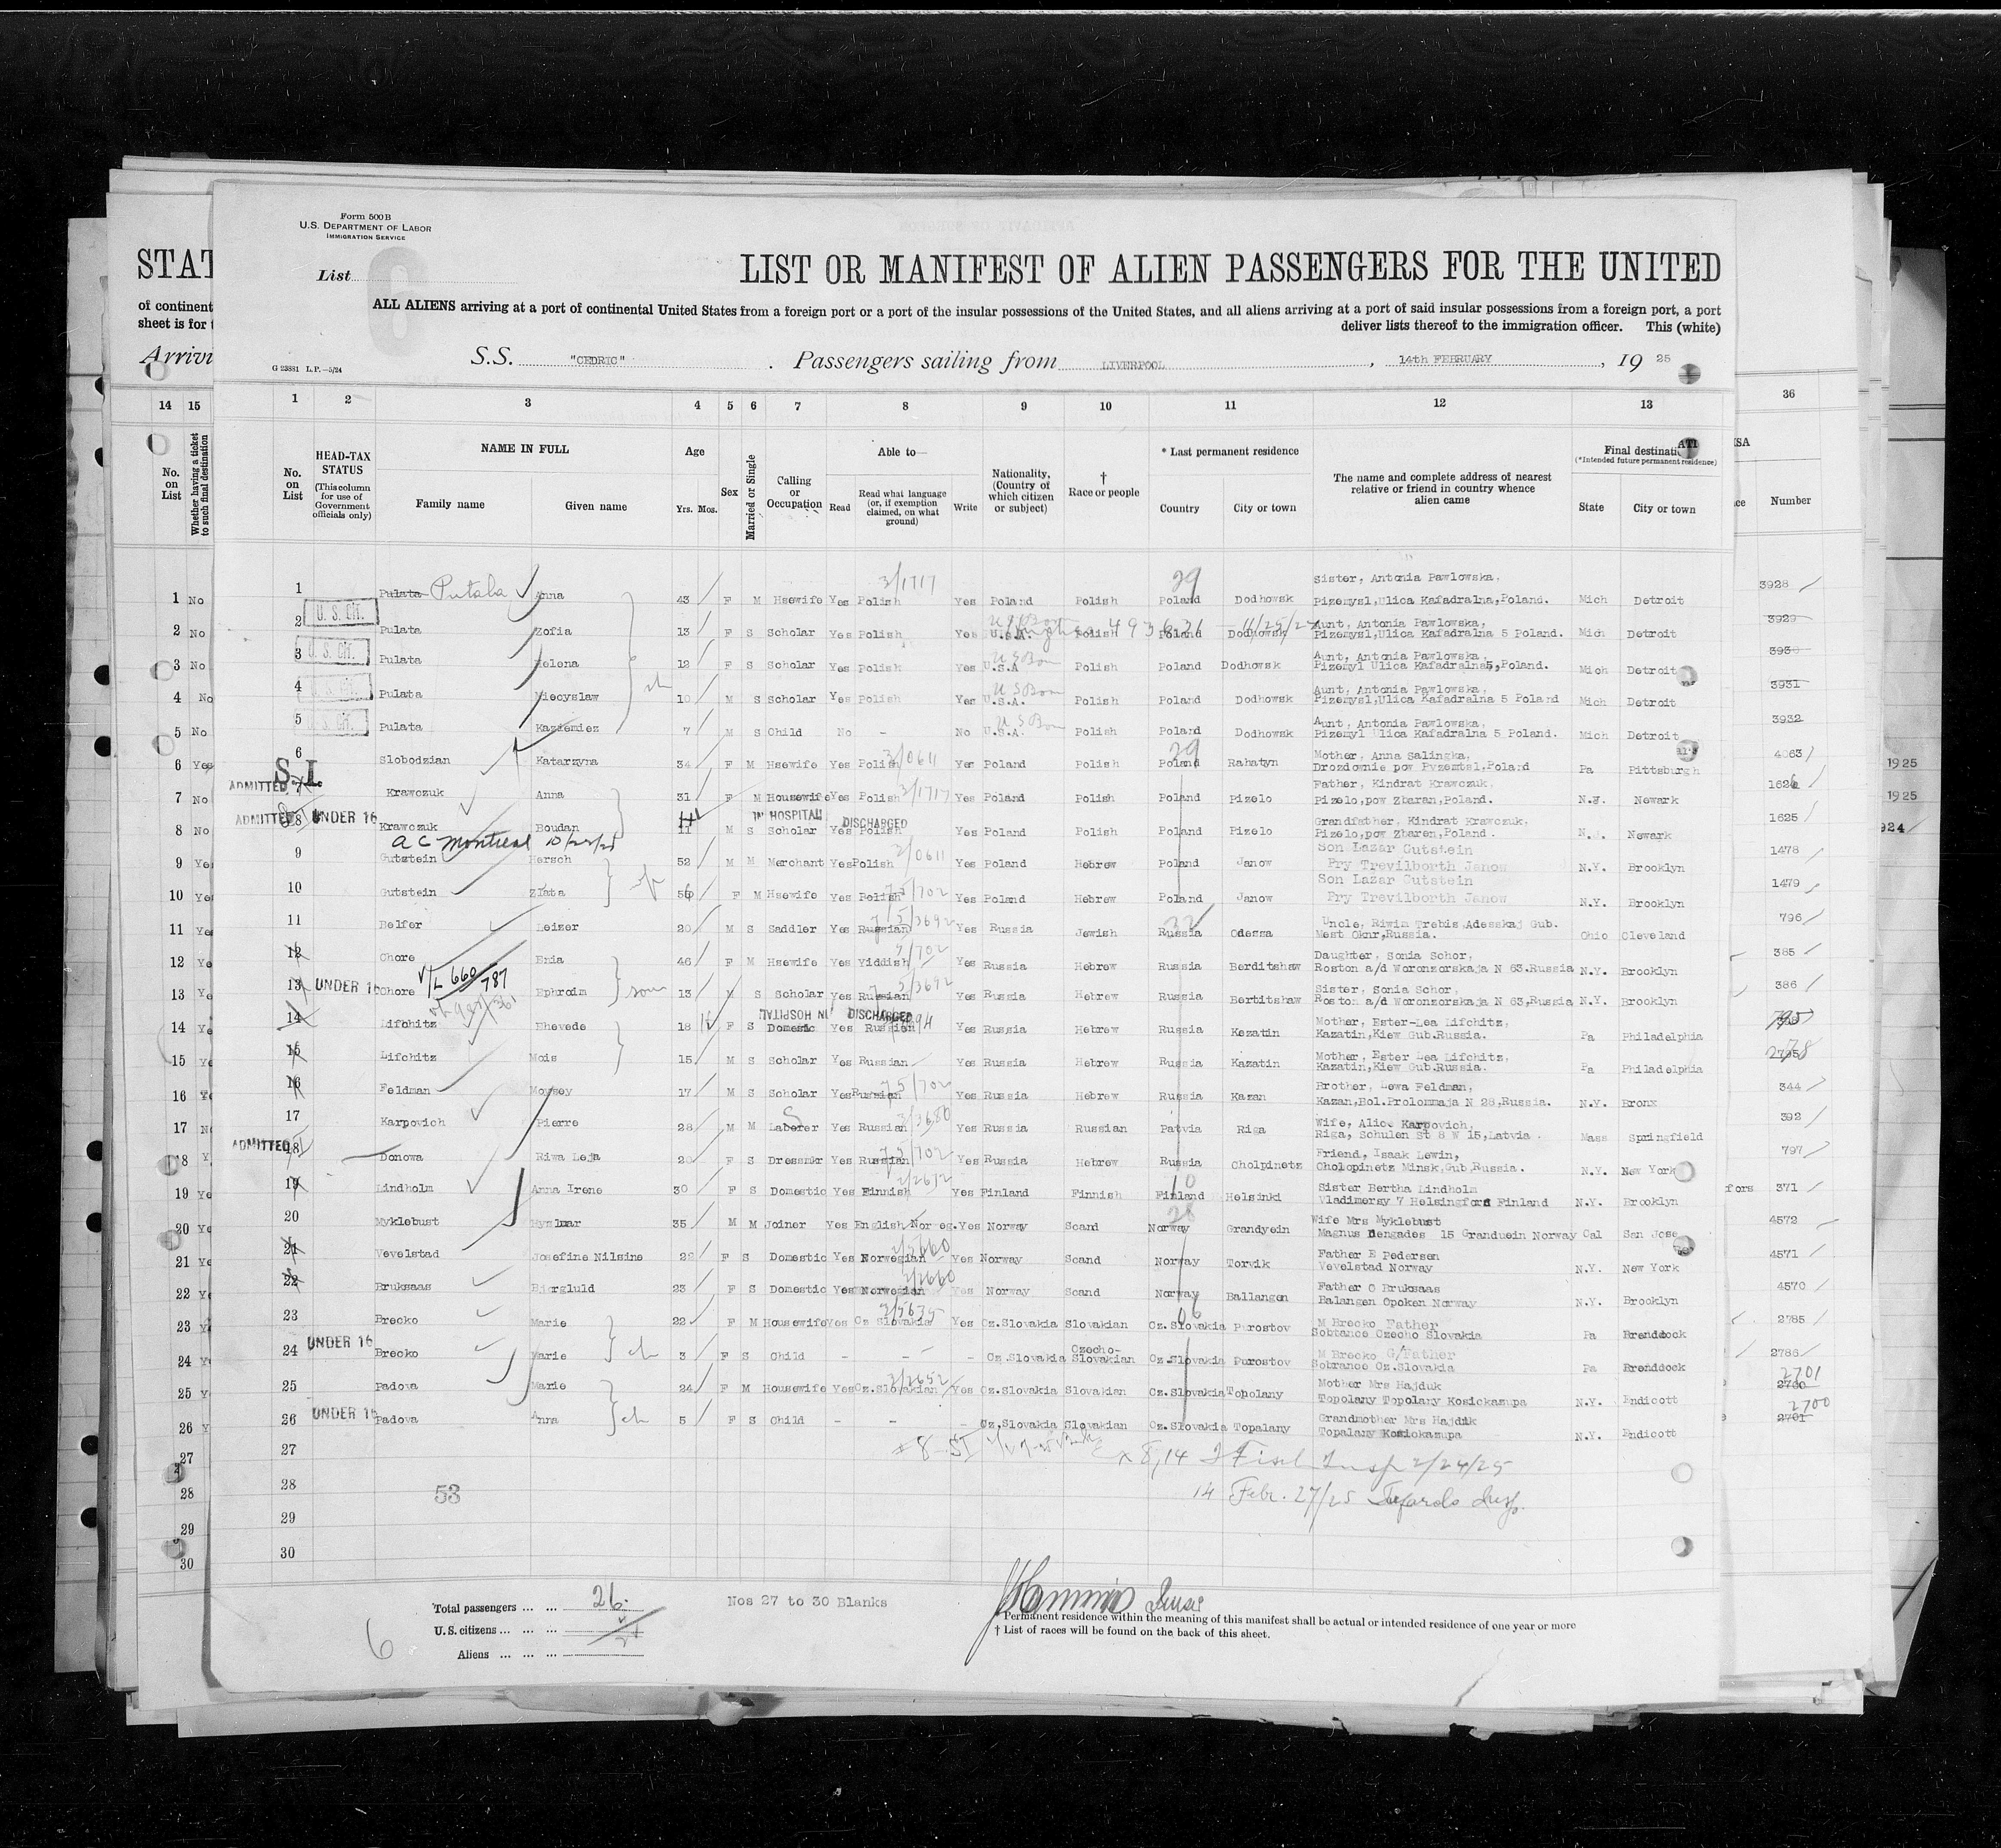 Form 500 B
U.S. DEPARTMENT OF LABOR
IMMIGRATION SERVICE
STAT
List
6
LIST OR MANIFEST OF ALIEN PASSENGERS FOR THE UNITED
of continent
sheet is for
ALL ALIENS arriving at a port of continental United States from a foreign port or a port of the insular possessions of the United States, and all aliens arriving at a port of said insular possessions from a foreign port, a port
deliver lists thereof to the immigration officer. This (white)
Arrivi
G 23881 L.P.—5/24
S.S. "CEDRIC" . Passengers sailing from LIVERPOOL , 14th FEBRUARY , 19 25
14 15 1 2 3 4 5 6 7 8 9 10 11 12 13 36
No. on List
Whether having a ticket to such final destination
No. on List
HEAD-TAX STATUS
(This column for use of Government officials only)
NAME IN FULL
Family name
Given name
Age
Yrs. Mos.
Sex
Married or Single
Calling or Occupation
Able to—
Read
Read what language (or, if exemption claimed, on what ground)
Write
Nationality, (Country of which citizen or subject)
† Race or people
* Last permanent residence
Country
City or town
The name and complete address of nearest relative or friend in country whence alien came
Final destinati
(*Intended future permanent residence)
State
City or town
Number
1 No 1 Pulata Putala Anna 43 F M Hsewife Yes Polish 3/1717 Yes Poland Polish 29 Poland Dodhowsk Sister, Antonia Pawlowska. Pizemysl,Ulica Kafadralna,Poland. Mich Detroit 3928
2 No 2 U. S. Cit. Pulata Zofia 13 F S Scholar Yes Polish Yes U.S.A. Polish Poland Dodhowsk Aunt, Antonia Pawlowska, Pizemysl,Ulica Kafadralna 5 Poland. Mich Detroit 3929
3 No 3 U. S. Cit. Pulata Helena 12 F S Scholar Yes Polish Yes U.S.A U S Born Polish Poland Dodhowsk Aunt, Antonia Pawlowska, Pizemyl Ulica Kafadralna5,Poland. Mich Detroit 3930
4 No 4 U. S. Cit. Pulata Miecyslaw 10 M S Scholar Yes Polish Yes U.S.A. U S Born Polish Poland Dodhowsk Aunt, Antonia Pawlowska, Pizemysl,Ulica Kafadralna 5 Poland Mich Detroit 3931
5 No 5 U. S. Cit. Pulata Kaziemiez 7 M S Child No - No U.S.A. U S Born Polish Poland Dodhowsk Aunt, Antonia Pawlowska, Pizemyl Ulica Kafadralna 5 Poland. Mich Detroit 3932
6 Yes 6 Slobodzian Katarzyna 34 F M Hsewife Yes Polish 3/0611 Yes Poland Polish 29 Poland Rahatyn Mother, Anna Salingka, Drozdownie pow Pyzemtsl,Poland Pa Pittsburgh 4063
7 No ADMITTED S.I. 7 Krawczuk Anna 31 F M Housewife Yes Polish 2/1717 Yes Poland Polish Poland Pizelo Father, Kindrat Krawczuk. Pizelo,pow Zbaran,Poland. N.J. Newark 1626
8 No ADMITTED 8 UNDER 16 Krawczuk Boudan 11 M S IN HOSPITAL DISCHARGED Scholar Yes Polish Yes Poland Polish Poland Pizelo Grandfather, Kindrat Krawczuk, Pizelo,pow Zbaren,Poland. Newark 1625
A C Montreal
9 Yes 9 Gutstein Hersch 52 M M Merchant Yes Polish 2/0611 Yes Poland Hebrew Poland Janow Son Lazar Gutstein Pry Trevilborth Janow N.Y. Brooklyn 1478
10 Yes 10 Gutstein Zlata F M Hsewife Yes Polish Yes Poland Hebrew Poland Janow Son Lazar Gutstein Pry Trevilborth Janow N.Y. Brooklyn 1479
11 Yes 11 Belfer Leizer 20 M S Saddler Yes Russian Yes Russia Jewish Russia Odessa Uncle, Riwim Trebis Adesskaj Gub. Mest Oknr,Russia. Ohio Cleveland 796
12 Ye 12 Chore Enia 46 F M Hsewife Yes Yiddish Yes Russia Hebrew Russia Berditshaw Daughter, Sonia Schor, Roston a/d Woronzorskaja N 63.Russia N.Y. Brooklyn 385
13 Ye 13 UNDER 16 Chore V/L 660/787 Ephroim 13 S Scholar Yes Russian Yes Russia Hebrew Russia Bertitshaw Sister, Sonia Schor, Roston a/d Woronzorskaja N 63,Russia N.Y. Brooklyn 386
14 Ye 14 Lifchitz Ehevede 18 F S IN HOSPITAL DISCHARGED Domestic Yes Russian Yes Russia Hebrew Russia Kezatin Mother, Ester-Lea Lifchitz, Kazatin,Kiew Gub.Russia. Pa Philadelphia
15 Ye 15 Lifchitz Mois 15 M S Scholar Yes Russian Yes Russia Hebrew Russia Kazatin Mother, Ester Lea Lifchitz, Kazatin,Kiew Gub.Russia. Pa Philadelphia
16 Ye 16 Feldman Moysey 17 M S Scholar Yes Russian Yes Russia Hebrew Russia Kazan Brother, Lewa Feldman, Kazan,Bol.Prolommaja N 28,Russia. N.Y. Bronx 344
17 N 17 Karpovich Pierre 28 M M Laborer Yes Russian 3/3680 Yes Russia Russian Patvia Riga Wife, Alice Karpovich, Riga, Schulen St 8 W 15,Latvia . Mass Springfield 392
18 Y ADMITTED 18 Donowa Riwa Leja 28 F S Dressmkr Yes Russian Yes Russia Hebrew Russia Cholpinetz Friend, Isaak Lewin, Cholopinetz Minsk,Gub,Russia. N.Y. New York 797
19 Ye 19 Lindholm Anna Irene 30 F S Domestic Yes Finnish 2/2612 Yes Finland Finnish 10 Finland Helsinki Sister Bertha Lindholm Vladimersy 7 Helsingfors Finland N.Y. Brooklyn fors 371
20 Ye 20 Myklebust Hymlmar 35 M M Joiner Yes English Norweg. Yes Norway Scand 28 Norway Grandyein Wife Mrs Myklebust Magnus Dengades 15 Granduein Norway Cal San Jose 4572
21 Ye 21 Vevelstad Josefine Nilsine 22 F S Domestic Yes Norwegian Yes Norway Scand Norway Torvik Father E Pedersen Vevelstad Norway N.Y. New York 4571
22 Ye 22 Bruksaas Bjergluld 23 F S Domestic Yes Norwegian 2/2660 Yes Norway Scand Norway Ballangen Father O Bruksaas Balangen Opoken Norway N.Y. Brooklyn 4570
23 Y 23 Brecko Marie 22 F M Housewife Yes Cz Slovakia 2/5635 Yes Cz.Slovakia Slovakian 06 Cz.Slovakia Purostov M Brecko Father Sobtance Czecho Slovakia Pa Brenddock 2785
24 Y 24 UNDER 16 Brecko Marie 3 F S Child - - - Cz.Slovakia Czecho-Slovakian Cz.Slovakia Purostov M Brecko G/Father Sobrance Cz.Slovakia Pa Brenddock 2786
25 Y 25 Padova Marie 24 F M Housewife Yes Cz.Slovakian 2/2652 Yes Cz.Slovakia Slovakian Cz.Slovakia Topolany Mother Mrs Hajduk Topolany Topolany Kosickazupa N.Y. Endicott 2700 2701
26 Y 26 UNDER 16 Padova Anna 5 F S Child - - - Cz.Slovakia Slovakian Cz.Slovakia Topalany Grandmother Mrs Hajduk Topalany Kosiokazupa N.Y. Endicott 2701 2700
27 27
x 8,14 Insp 2/24/25
28 28 53
14 Febr. 27/25 Insp.
29 29
30 30
Total passengers ... ... 26.
Nos 27 to 30 Blanks
U.S. citizens ... ... ...
Aliens ... ... ...
6
* Permanent residence within the meaning of this manifest shall be actual or intended residence of one year or more
† List of races will be found on the back of this sheet.
1925
1925
924